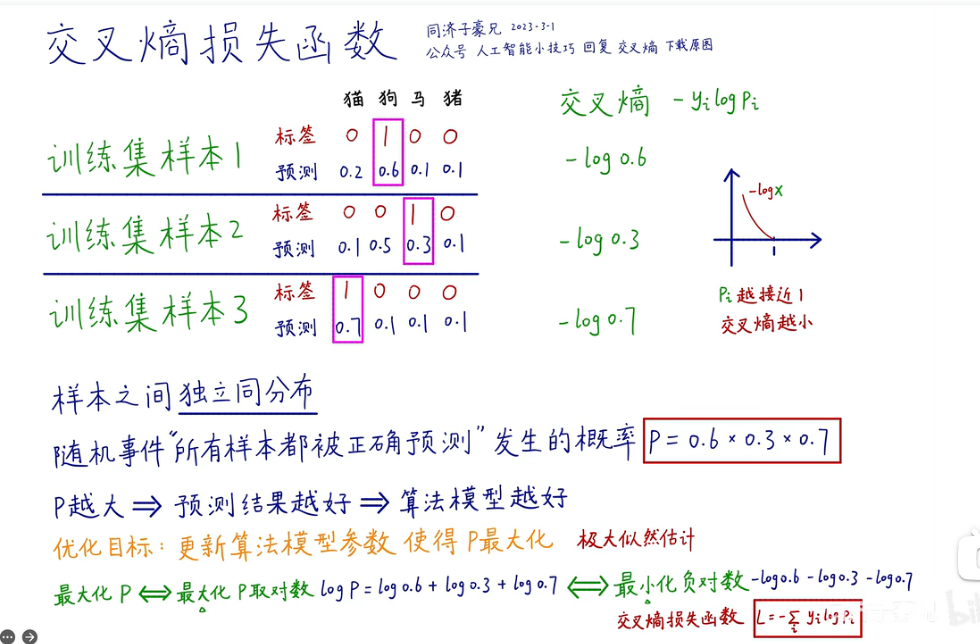 交叉熵损失函数
同济子豪兄 2023-3-1
公众号 人工智能小技巧 回复 交叉熵 下载原图
猫 狗 马 猪
交叉熵 -yᵢlogPᵢ
训练集样本1
标签 0 1 0 0
预测 0.2 0.6 0.1 0.1
-log 0.6
训练集样本2
标签 0 0 1 0
预测 0.1 0.5 0.3 0.1
-log 0.3
训练集样本3
标签 1 0 0 0
预测 0.7 0.1 0.1 0.1
-log 0.7
-logx
1
Pᵢ越接近1
交叉熵越小
样本之间独立同分布
随机事件“所有样本都被正确预测”发生的概率 P = 0.6 × 0.3 × 0.7
P越大 ⟹ 预测结果越好 ⟹ 算法模型越好
优化目标: 更新算法模型参数 使得 P最大化 极大似然估计
最大化 P ⟺ 最大化 P取对数 log P = log 0.6 + log 0.3 + log 0.7 ⟺ 最小化负对数 -log0.6 -log0.3 -log0.7
交叉熵损失函数 L=-∑ᵢ yᵢlogPᵢ